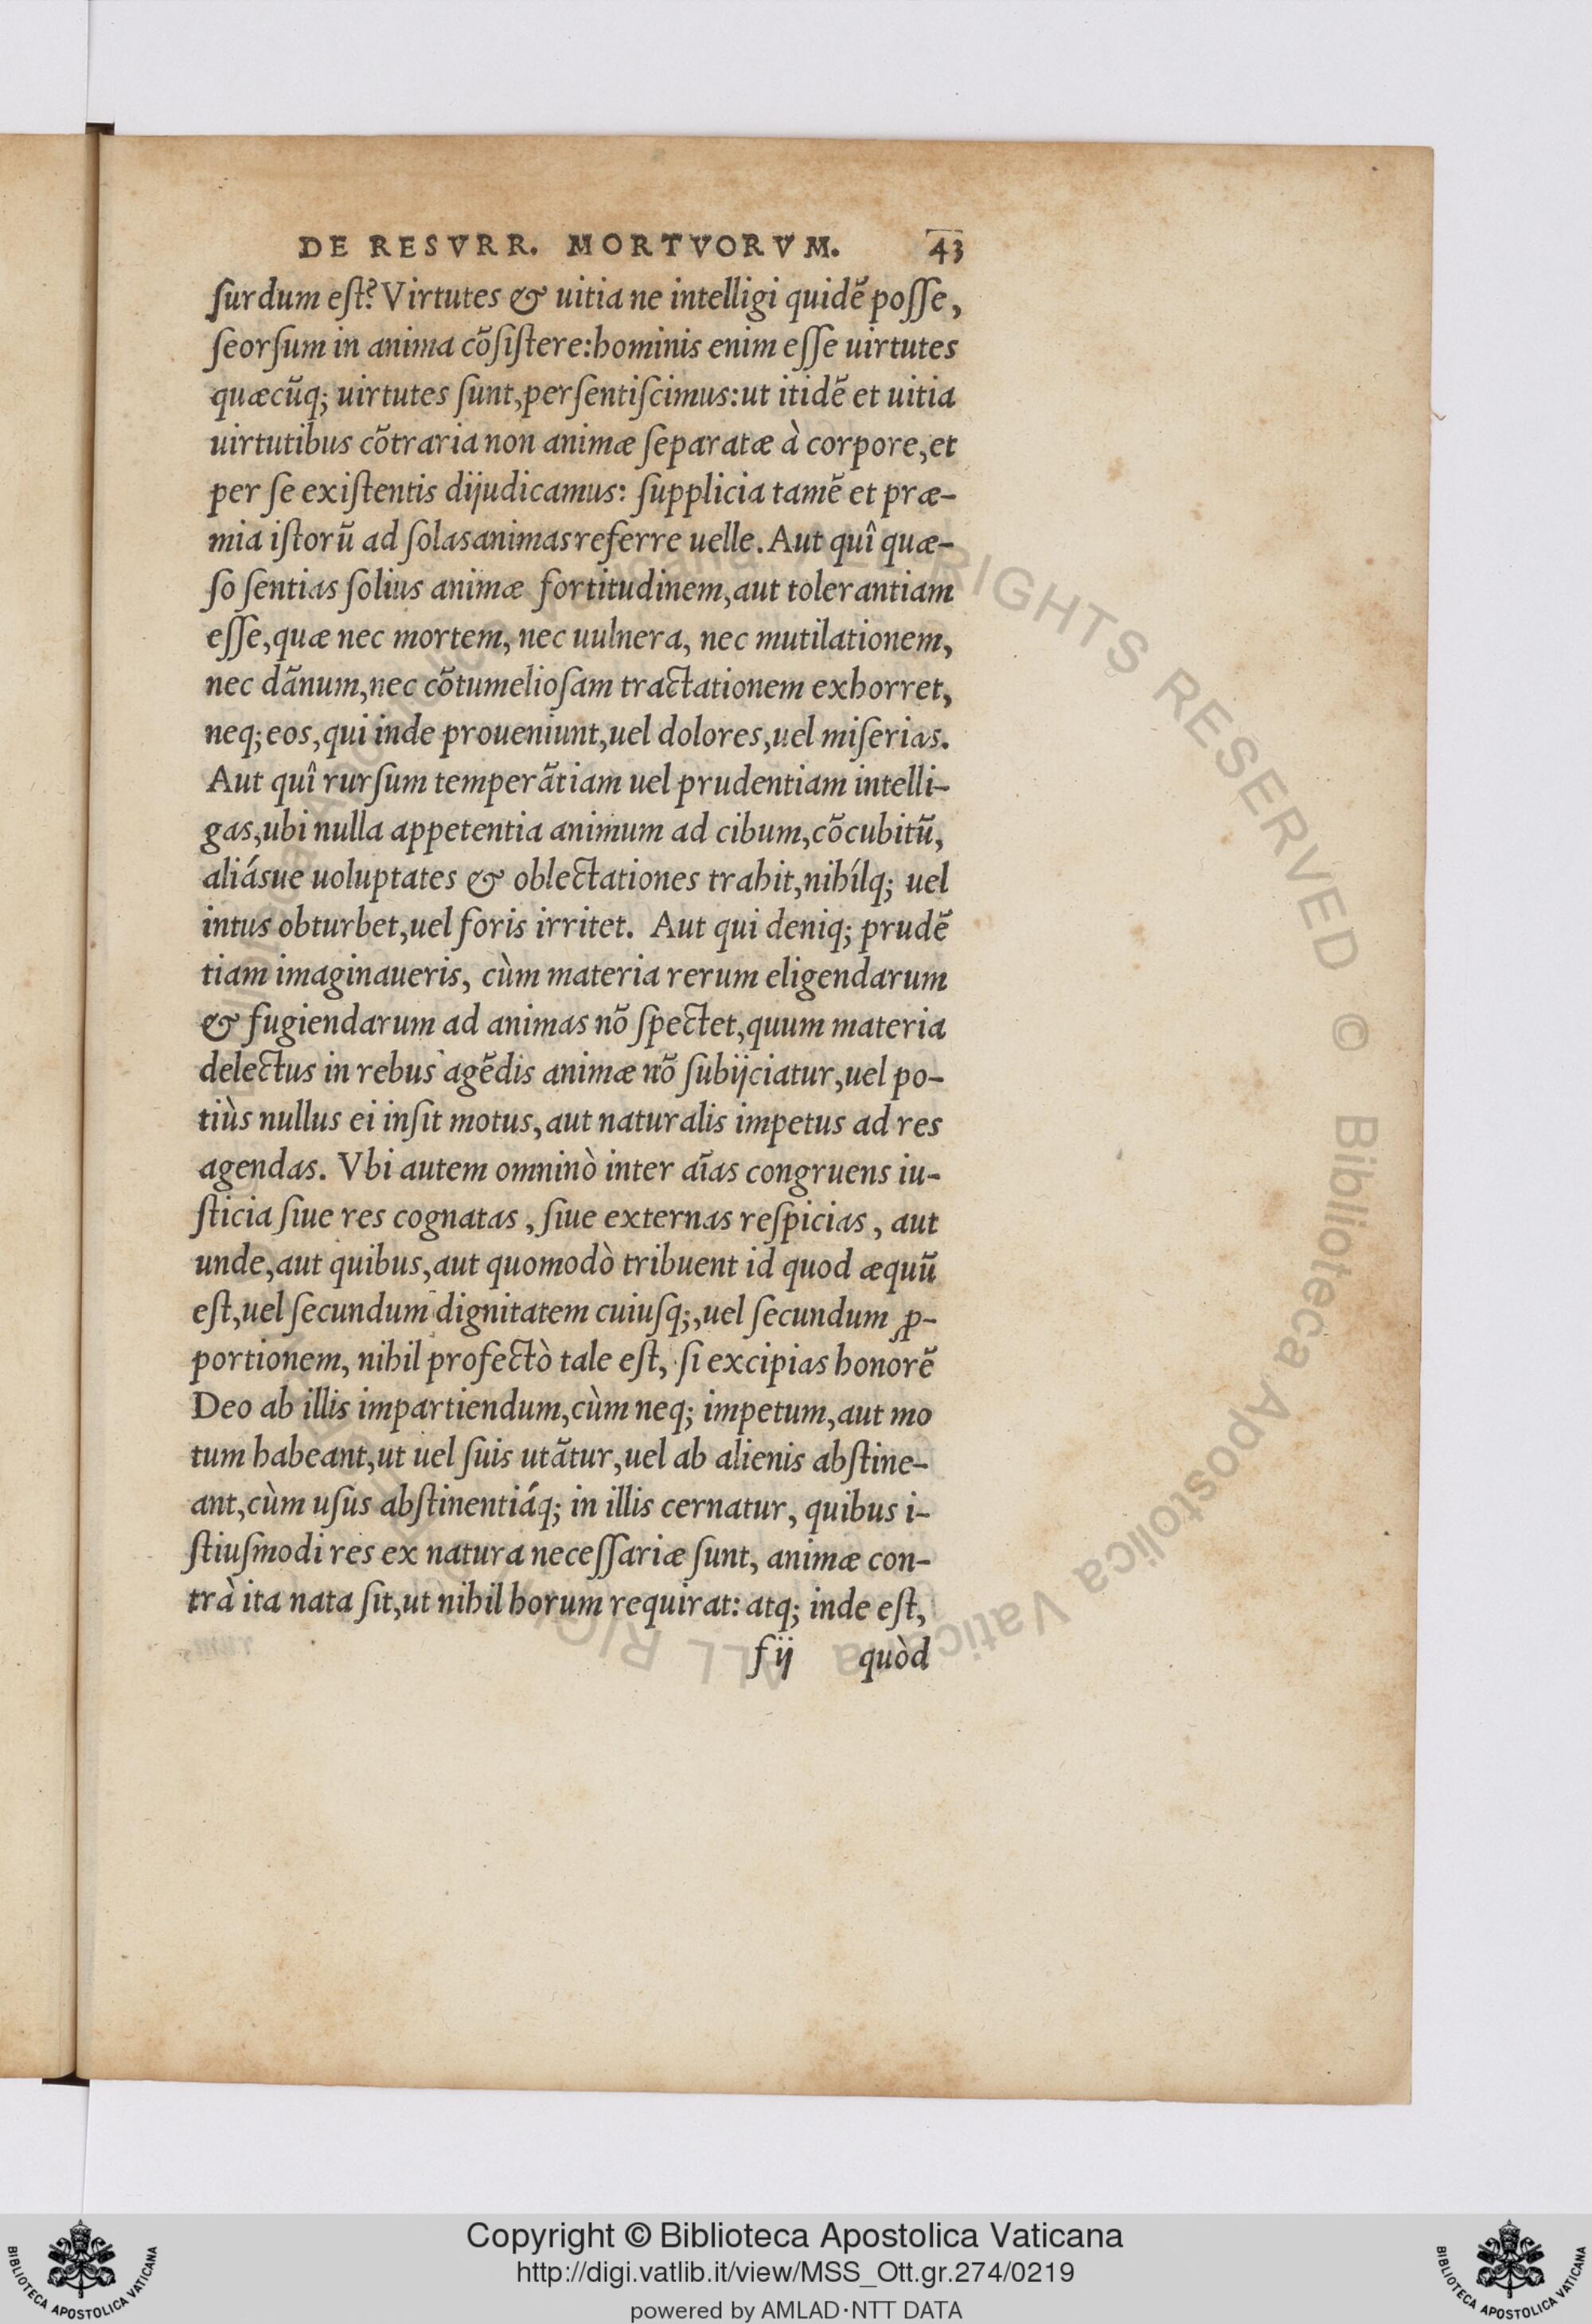 DE RESVRR. MORTVORVM. 43
ſurdum eſt? Virtutes & uitia ne intelligi quidē poſſe,
ſeorſum in anima cōſiſtere: hominis enim eſſe uirtutes
quæcūq; uirtutes ſunt, perſentiſcimus: ut itidē et uitia
uirtutibus cōtraria non animæ ſeparatæ à corpore, et
per ſe exiſtentis dijudicamus: ſupplicia tamē et præ-
mia iſtorū ad ſolas animas referre uelle. Aut quî quæ-
ſo ſentias ſolius animæ fortitudinem, aut tolerantiam
eſſe, quæ nec mortem, nec uulnera, nec mutilationem,
nec dānum, nec cōtumelioſam tractationem exhorret,
neq; eos, qui inde proueniunt, uel dolores, uel miſerias.
Aut quî rurſum temperātiam uel prudentiam intelli-
gas, ubi nulla appetentia animum ad cibum, cōcubitū,
aliásue uoluptates & oblectationes trahit, nihílq; uel
intus obturbet, uel foris irritet. Aut qui deniq; prudē
tiam imaginaueris, cùm materia rerum eligendarum
& fugiendarum ad animas nō ſpectet, quum materia
delectus in rebus agēdis animæ nō ſubijciatur, uel po-
tiùs nullus ei inſit motus, aut naturalis impetus ad res
agendas. Vbi autem omninò inter aīas congruens iu-
ſticia ſiue res cognatas, ſiue externas reſpicias, aut
unde, aut quibus, aut quomodò tribuent id quod æquū
eſt, uel ſecundum dignitatem cuiuſq;, uel ſecundum ꝓ-
portionem, nihil profectò tale eſt, ſi excipias honorē
Deo ab illis impartiendum, cùm neq; impetum, aut mo
tum habeant, ut uel ſuis utātur, uel ab alienis abſtine-
ant, cùm uſus abſtinentiáq; in illis cernatur, quibus i-
ſtiuſmodi res ex natura neceſſariæ ſunt, animæ con-
trà ita nata ſit, ut nihil horum requirat: atq; inde eſt,
f ij quòd
Copyright © Biblioteca Apostolica Vaticana
http://digi.vatlib.it/view/MSS_Ott.gr.274/0219
powered by AMLAD·NTT DATA
BIBLIOTECA APOSTOLICA VATICANA
BIBLIOTECA APOSTOLICA VATICANA